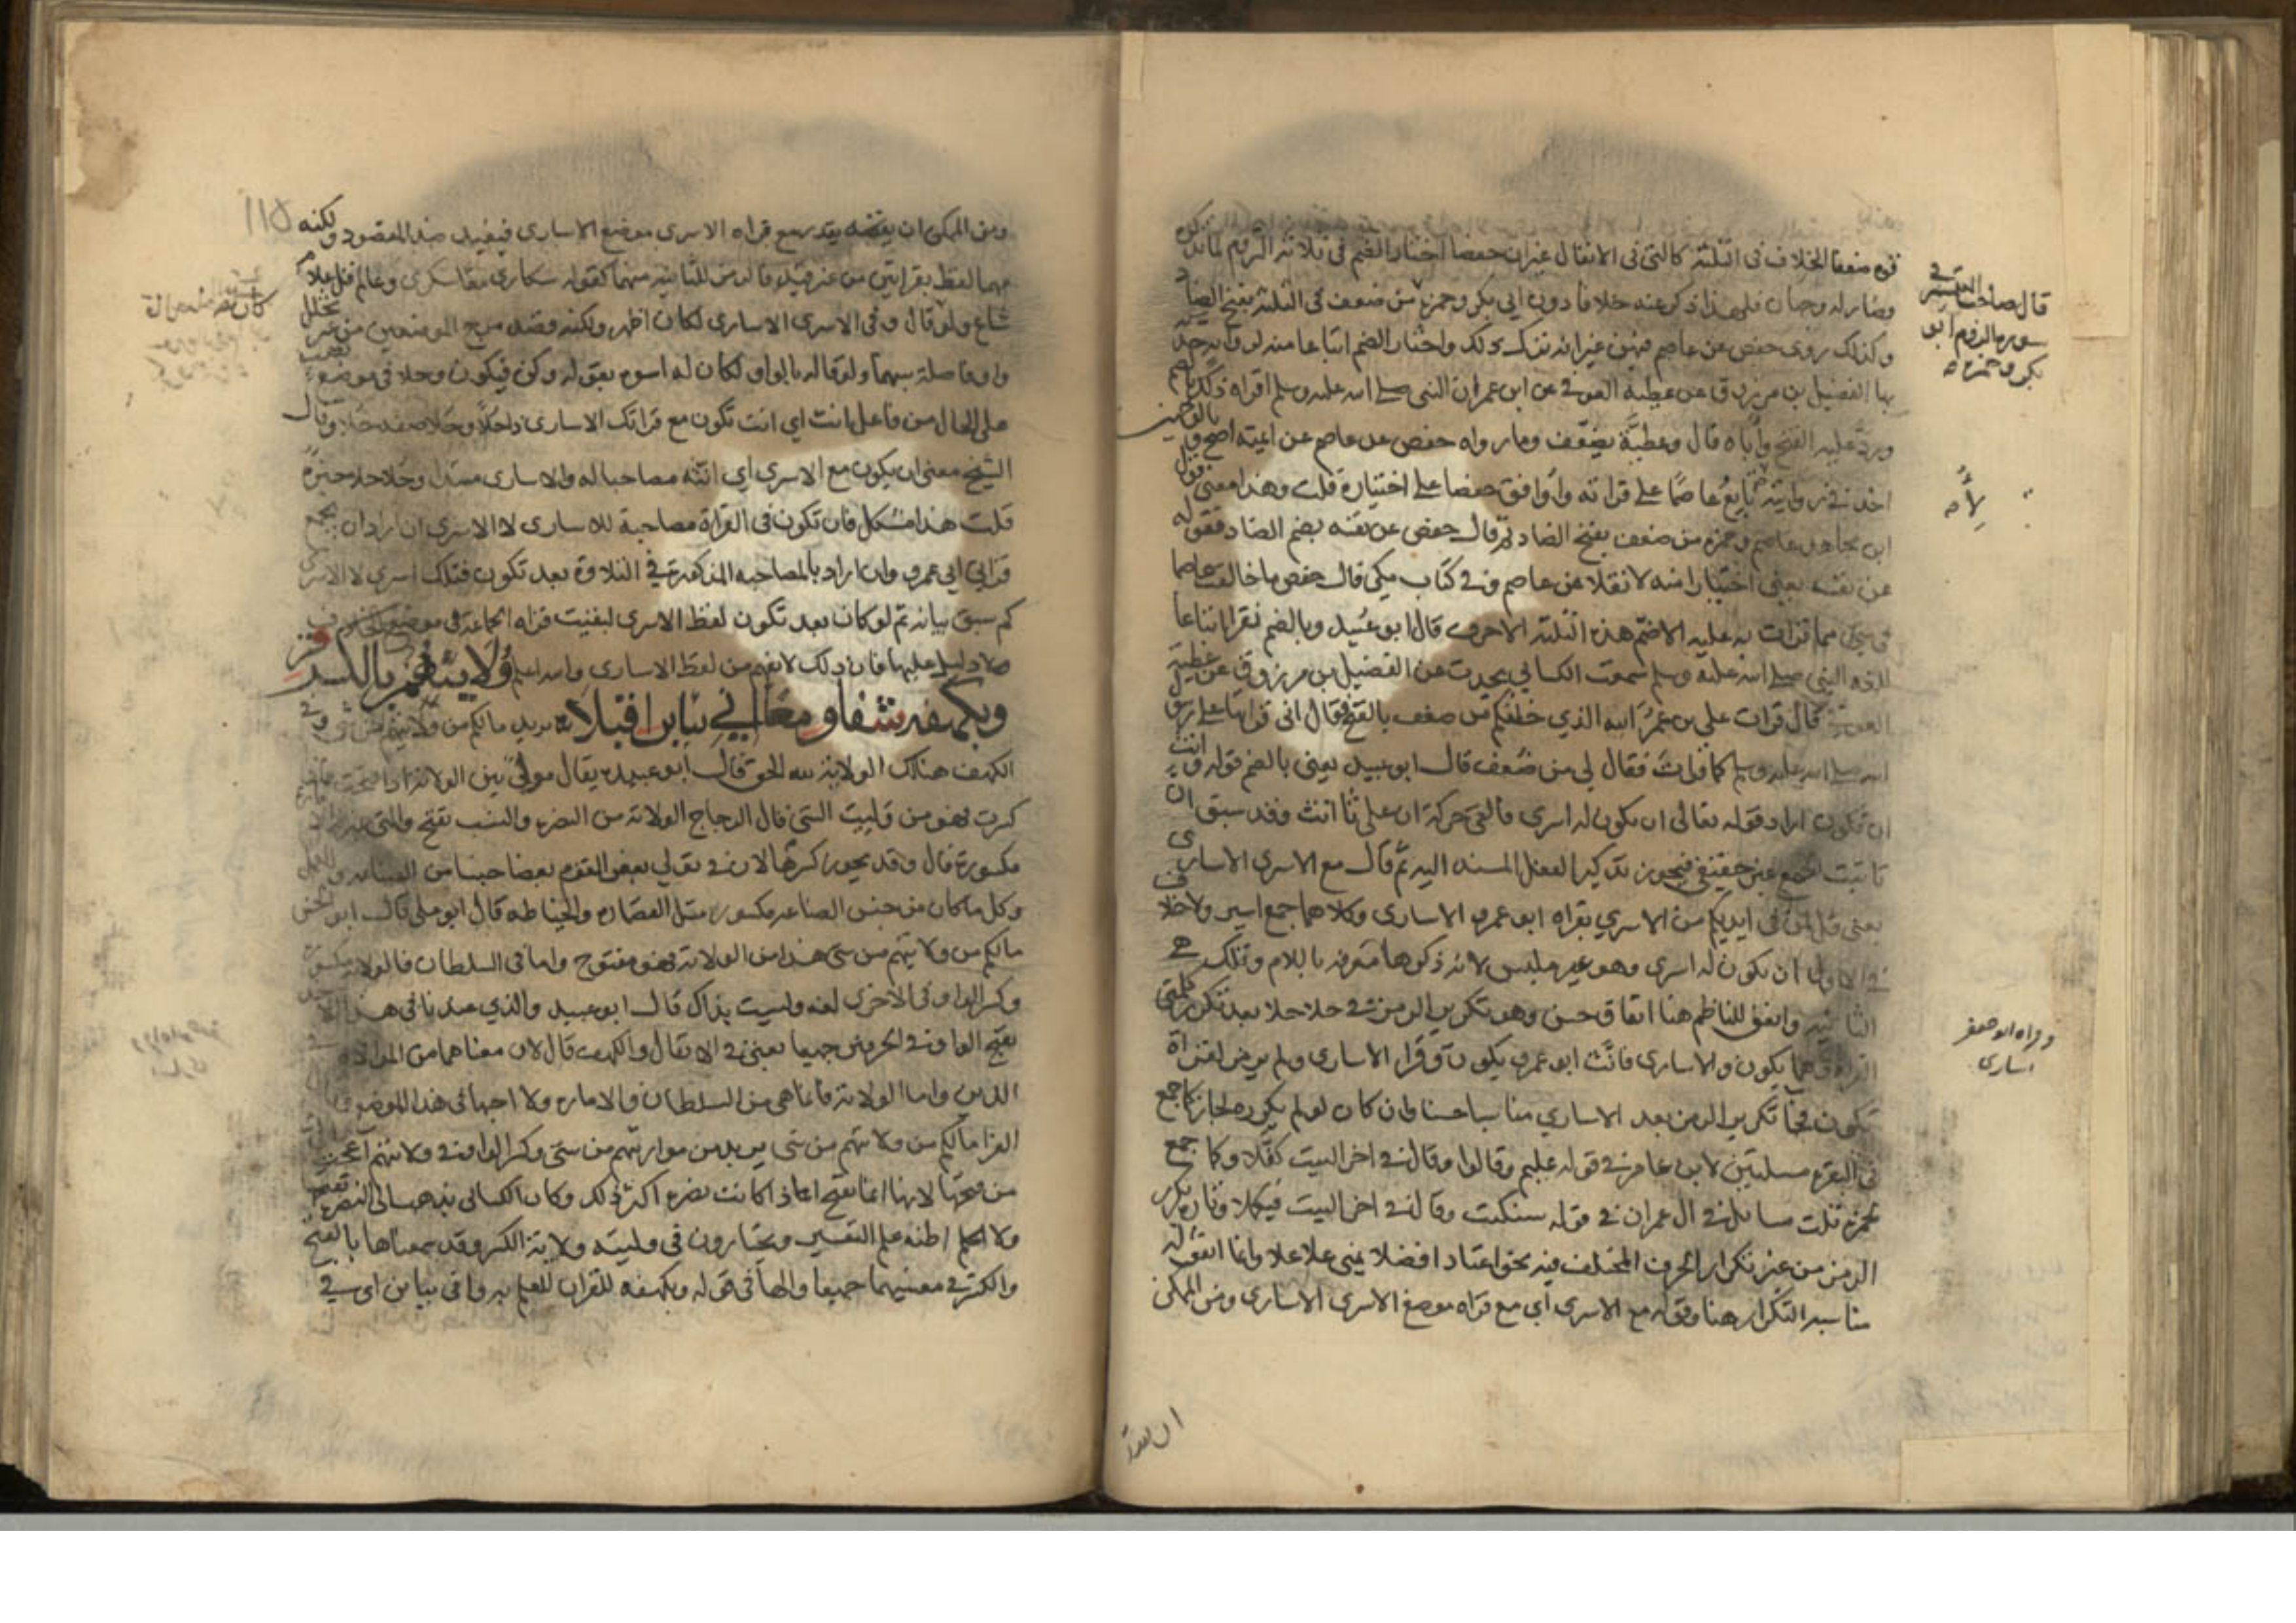 قوة ضعفا الخلاف في الثلثة كالتي في الانفال غير ان حفصا اختار الضم في ثلاثة الروم لما نذكره
فلهذا ذكر عنه خلافا دون ابي بكر وحمزة من ضعف في الثلثة بفتح الضاد
وكذلك روى حفص عن عاصم فيهن غير انه ترك ذلك واختار الضم اتباعا منه لرواية حد
بها الفضيل بن مرزوق عن عطية العوفي عن ابن عمر ان النبي صلى الله عليه وسلم اقراه ذلك بالضم
ورد عليه الفتح وأباه قال وعطية يضعف وما رواه حفص عن عاصم عن ايمته اصح وبالوجهين
اخذ في روايته لاتابع عاصما على قراته واوافق حفصا على اختياره قلت وهذا معنى قول
ابن مجاهد عاصم وحمزة من ضعف بفتح الضاد ثم قال حفص عن نفسه بضم الضاد فقوله
عن نفسه يعني اختيارا منه لا نقلا عن عاصم وفي كتاب مكي قال حفص ما خالفت عاصما
في شي مما قرات به عليه الا ضم هذه الثلثة الاحرف قال ابو عبيد وبالضم نقرا اتباعا
النبي صلى الله عليه وسلم سمعت الكسائي يحدث عن الفضيل بن مرزوق عن عطية
العوفي قال قرات على بن عمر الله الذي خلقكم من ضعف بالفتح فقال اني قراتها على رسول
الله صلى الله عليه وسلم كما قرات فقال لي من ضعف قال ابو عبيد يعني بالضم قوله وانث
ان تكون اراد قوله تعالى ان يكون له اسرى فالقى حركة ان على ثا انث وقد سبق ان
تانيث الجمع غير حقيقي فيجوز تذكير الفعل المسند اليه ثم قال مع الاسرى الاسارى
يعني قل لمن في ايديكم من الاسرى بقراه ابو عمرو الاسارى وكلاهما جمع اسير ولا خلاف
في الاول ان يكون له اسرى وهو غير ملبس لانه ذكرها معرفة باللام وتلك هي
الثانية واتفق للناظم هنا اتفاق حسن وهو تكرير الرمز في حلا حلا بعد تكرر كلمتي
القراة وهما يكون والاسارى فانث ابو عمرو يكون وقرا الاسارى ولم يرمز لقراة
تكون فجا تكرير الرمز بعد الاسارى مناسبا حسنا وان كان لو لم يكرره لجاز كما جمع
في البقرة مسلتين لابن عامر في قوله عليم وقالوا وقال في اخر البيت كفلا وكما جمع
لحمزة ثلث مسايل في ال عمران في قوله سنكتب وقال في اخر البيت فيكملا وثان يكرر
الرمز من غير تكرار الحرف المختلف فيه نحو اعتاد افضلا يمنى علا علا وانما اتفق له
مناسبة التكرار هنا وقوله مع الاسرى أي مع قراه موضع الاسرى الاسارى ومن الممكن
قال صاحب التيسير في
سورة الروم ابو
بكر وحمزة
لأنه
وقراه ابو جعفر
اسارى
١١٥
ومن الممكن ان يقتضيه بتدبر مع قراه الاسرى موضع الاسارى فيفيد ضد المقصود ولكنه
مهما لفظ بقراتين من غير قيد فالرمز للثانية منهما كقوله سكارى معا سكرى وعالم قل علام
شاع ولو قال وفي الاسرى الاسارى لكان اظهر ولكنه قصد مزج الموضعين من غير تخلل
واو فاصلة بينهما ولو قاله بالواو لكان له اسوة بقوله وكن فيكون وحلا في موضع نصب
على الحال من فاعل انث اي انث تكون مع قراتك الاسارى ذا حلا وحلا صفة حلا وقال
الشيخ معنى ان يكون مع الاسرى أي انثه مصاحبا له والاسارى مبتدا وحلا حلا خبره
قلت هذا مشكل فان تكون في القراة مصاحبة للاسارى لا الاسرى ان اراد ان يجمع
قراتي ابي عمرو وان اراد بالمصاحبة المذكورة في التلاوة بعد تكون فتلك اسرى لا الاسرى
كما سبق بيانه ثم لو كان بعد تكون لفظ الاسرى لبقيت قراه الجماعة في موضع الخلاف
لا دليل عليها فان ذلك لا يفهم من لفظ الاسارى والله اعلم ولايتهم بالكسر فز
وبكهفه شفا ومعا اني بيايين اقبلا يريد مالكم من ولايتهم من شي وفي
الكهف هنالك الولاية لله الحق قال ابو عبيد يقال مولى بين الولاية اذا فتحت فاذا
كسرت فهو من وليت الشي قال الزجاج الولاية من النصرة والنسب بفتح والتي بمنزلة
مكسورة قال وقد يجوز كسرها لان في تولي بعض القوم بعضا جنسا من الصناعة والعمل
وكل ما كان من جنس الصناعة مكسور مثل القصارة والخياطة قال ابو علي قال ابو الحسن
مالكم من ولايتهم من شي هذا من الولاية فهو مفتوح واما في السلطان فالولاية مكسورة
وكسر الواو في الاخرى لغة وليست بذاك قال ابو عبيد والذي عندنا في هذا الاخذ
بفتح الواو في الحرفين جميعا يعني في الانفال والكهف قال لان معناهما من الموالاة في
الدين واما الولاية فانما هي من السلطان والامارة ولا احبها في هذا الموضع وقال
الفرا مالكم من ولايتهم من شي يريد من مواريثهم من شي وكسر الواو في ولايتهم اعجب الي
من فتحها لانها انما تفتح اذا كانت نصرة اكثر ذلك وكان الكسائي يذهب الى النصرة بفتحها
ولا اظنه علم التفسير ويختارون في وليته ولاية الكسر وقد سمعناها بالفتح
والكسر في معنييهما جميعا والهاء في قوله وبكهفه للقران للعلم به واقى بيا من اني في